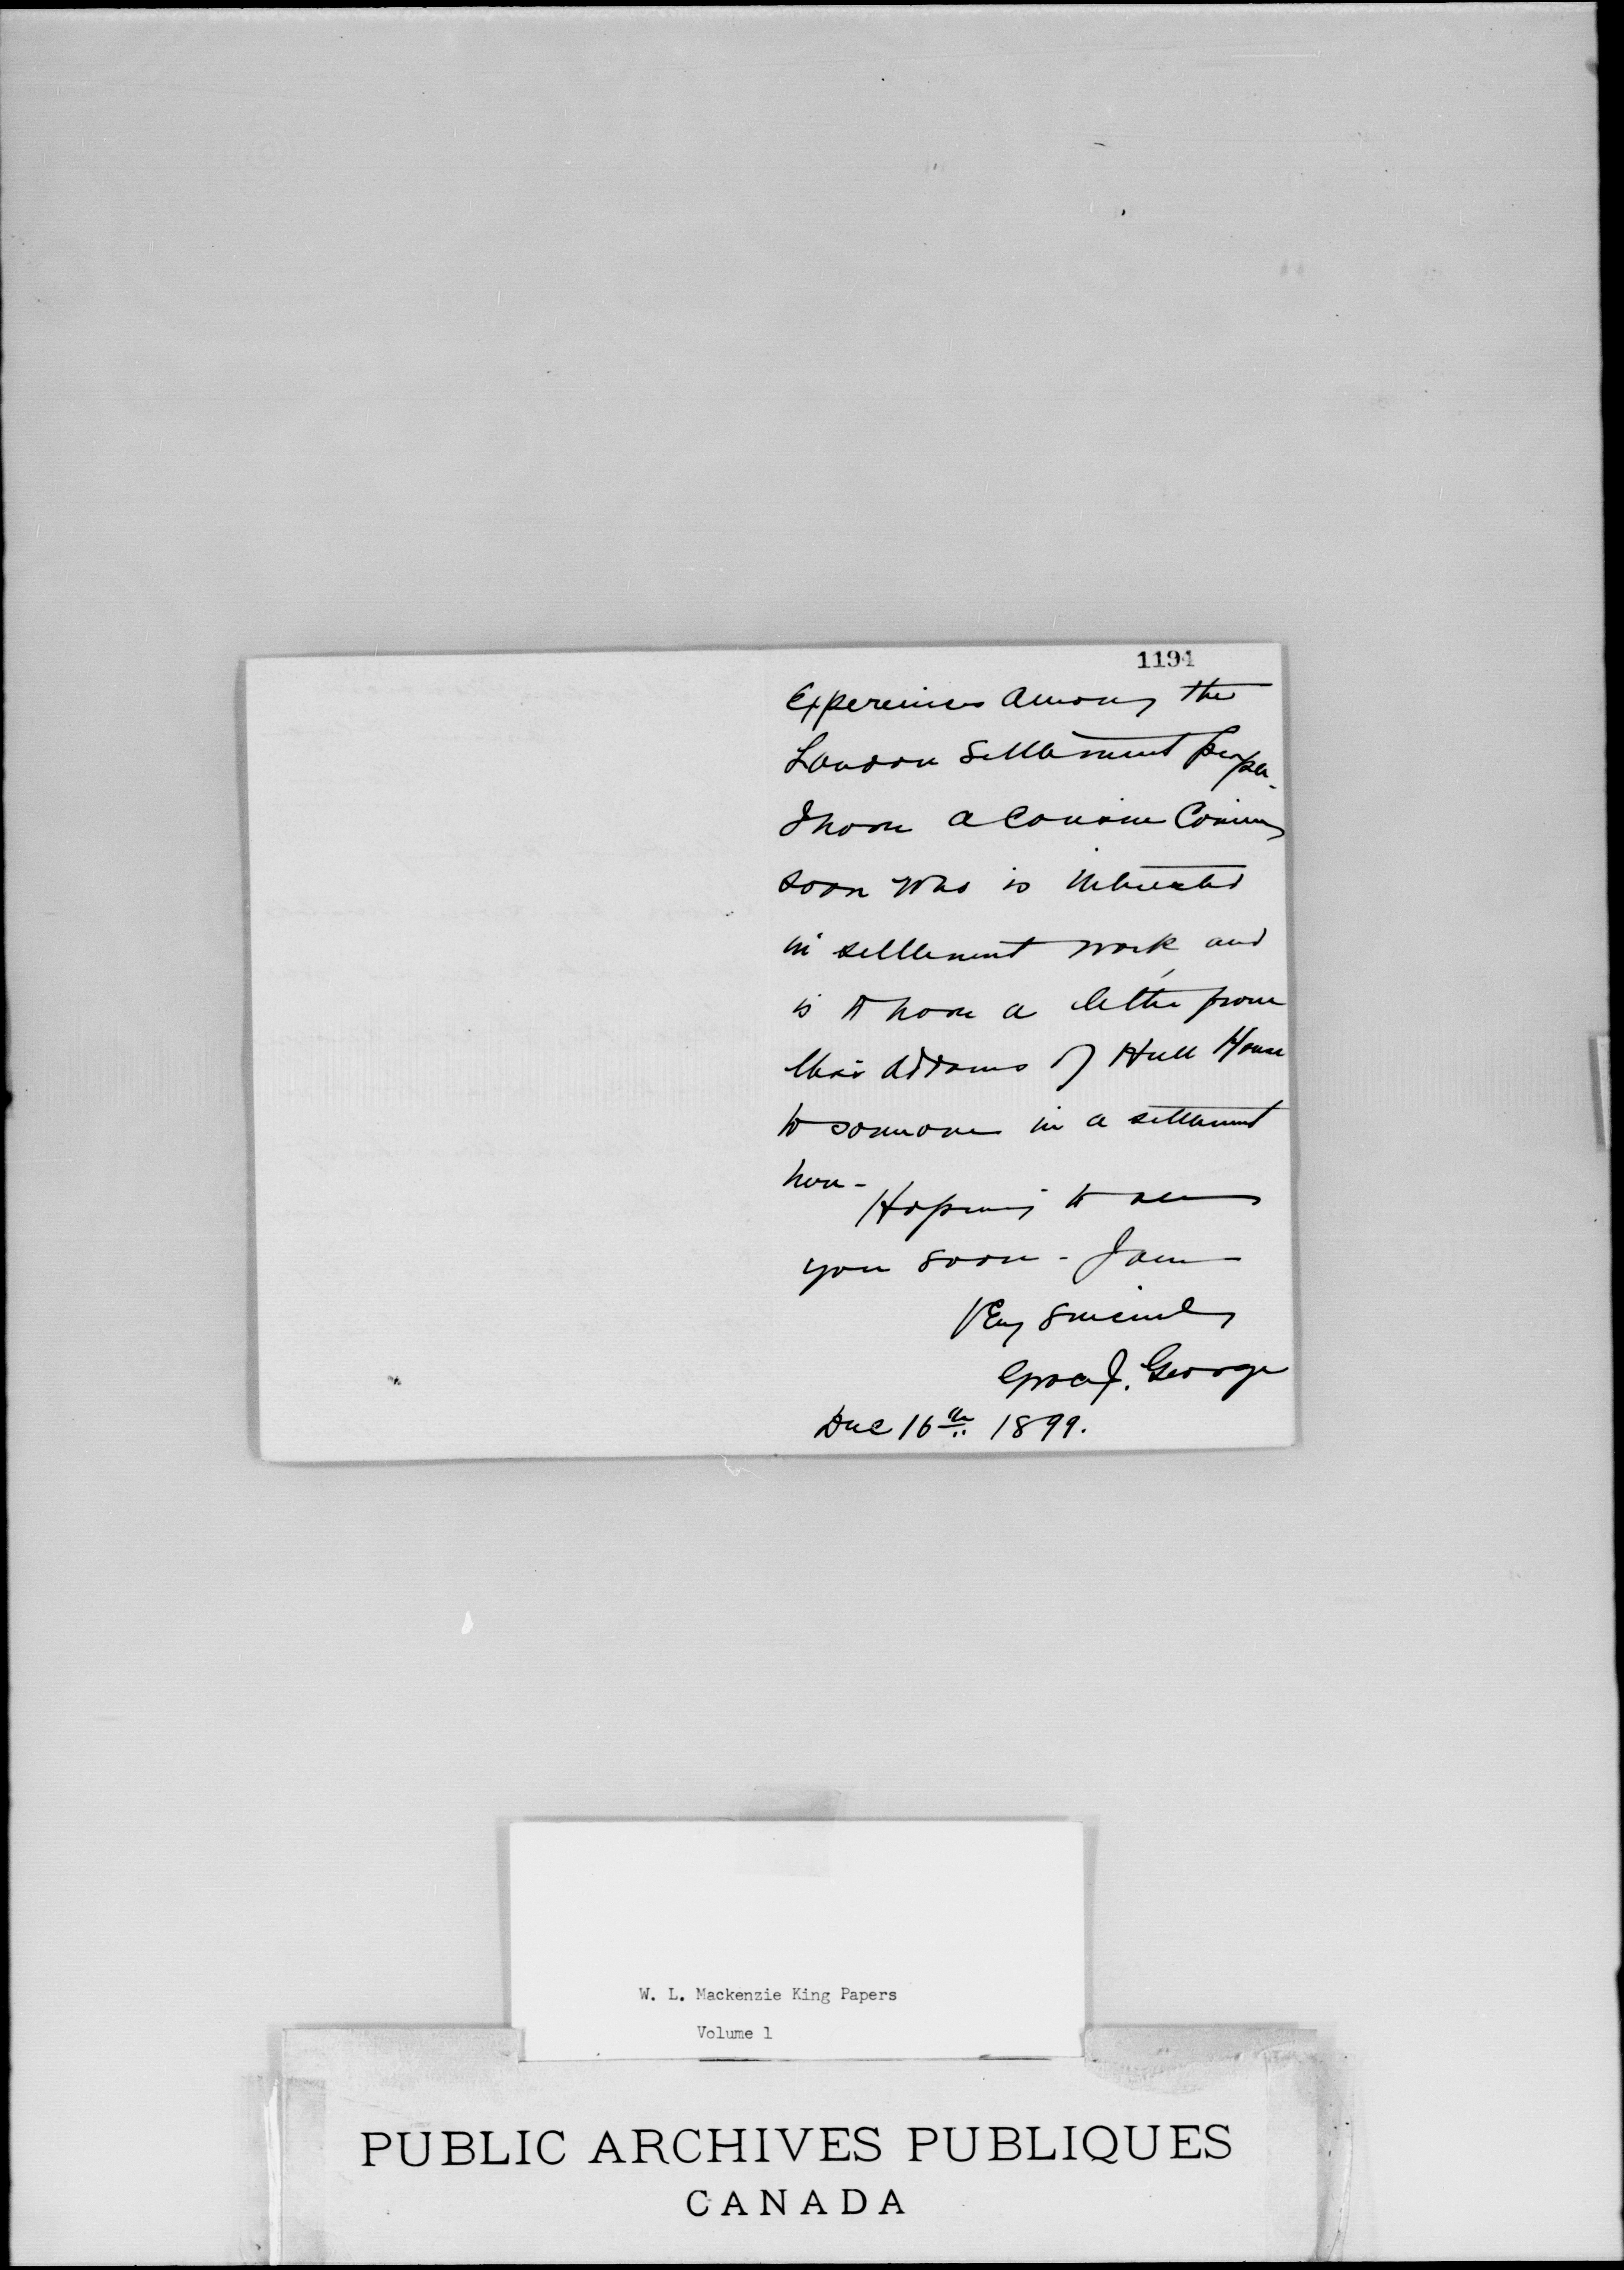 1194
Experiences among the
London Settlement people.
I have a cousin coming
soon who is interested
in settlement work and
is to have a letter from
Miss Addams of Hull House
to someone in a settlement
here-
Hoping to see
you soon - I am
Very sincerely
Grace J. George
Dec 16th 1899.
W. L. Mackenzie King Papers
Volume 1
PUBLIC ARCHIVES PUBLIQUES
CANADA